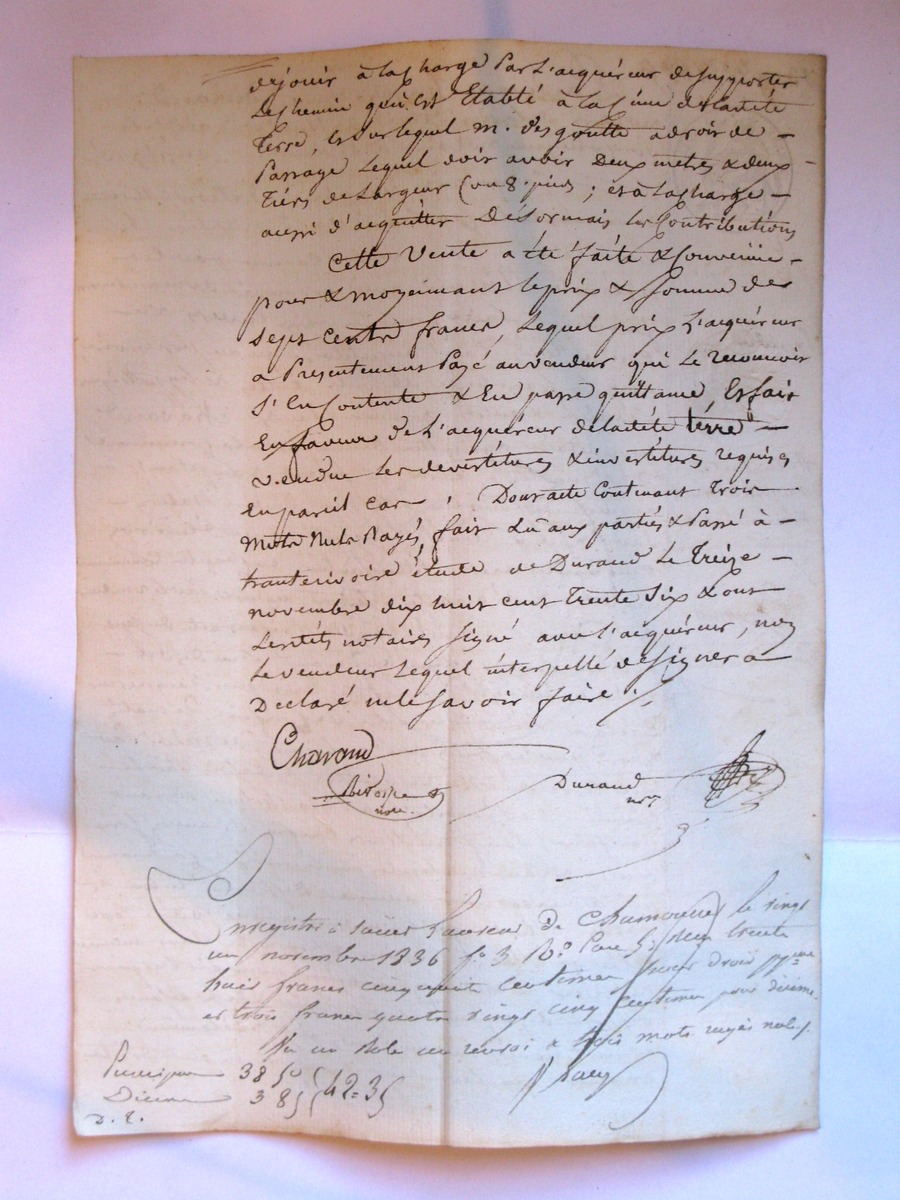 de jouir à la charge par l'acquéreur de supporter
le chemin qui est Etabli à la cime de la dite
Terre, et sur lequel m. des goutte a droit de -
Passage lequel doit avoir Deux metres & deux -
Tiers de Largeur (ou 8. pieds ; et à la charge -
aussi d'acquitter Désormais les Contributions
Cette Vente a été faite & convenüe -
pour & moyennant le prix & somme de
sept cents francs, lequel prix l'acquéreur
a Présentement Payé au vendeur qui le reconnoit
s'En Contente & En passe quittance, Et fait
En faveur de l'acquereur de la dite terre -
vendue les devestitures & investitures requises
En pareil cas. Dont acte Contenant Trois
mots Nuls Rayés, fait Lû aux parties & Passé à -
étude de Durand le Treize -
novembre dix huit cent Trente Six & ont
Les dits notaires signé avec l'acquéreur, non
Le vendeur Lequel interpellé de signer a
Declaré ne le savoir faire ./.
Chavand
nore.
Durand
nre
Enregistré à Laurent de Chamousset le vingt
un novembre 1836 fo 3 Ro. Case 5; reçu trente
huit francs cinquante centimes pour droit ppal
et trois francs quatre vingt cinq centimes pour dixième
un Role un renvoi & trois mots rayés nuls.
Principal 38 50
Dixieme 3 85 42=35
D. E.